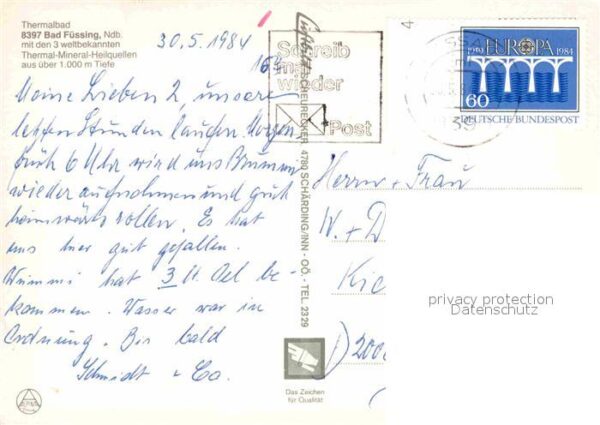 Thermalbad
8397 Bad Füssing, Ndb.
mit den 3 weltbekannten
Thermal-Mineral-Heilquellen
aus über 1.000 m Tiefe
30.5.1984
Meine Lieben 2, unsere
letzten Stunden laufen. Morgen
früh 6 Uhr wird uns
wieder aufnehmen und gut
heimwärts rollen. Es hat
uns hier gut gefallen.
hat 3 Oel be-
kommen. Wasser war in
Ordnung. Bis bald
Schmidt + Co.
SCHEURECKER, 4780 SCHÄRDING/INN - OÖ. - TEL. 2329
Schreib
mal
wieder
Post
4
1959 EUROPA 1984
60
DEUTSCHE BUNDESPOST
Herrn + Frau
W. + D
D 2000
Das Zeichen
für Qualität
privacy protection
Datenschutz